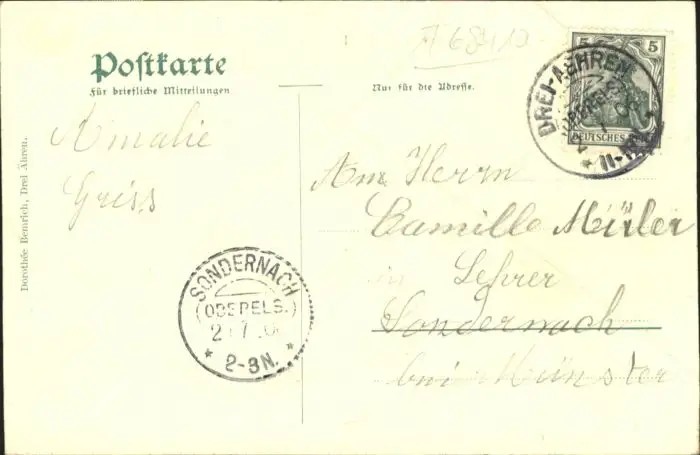 A 68419
Postkarte
Für briefliche Mitteilungen
Nur für die Adresse.
5 5
DEUTSCHES REICH
DREI-AEHREN
(OBERELS.)
11-12
Amalie
Griss
Am Herrn
Camille Müller
in Lehrer
Sondernach
bei Münster
SONDERNACH
(OBERELS.)
2-3N.
Dorothée Bemrich, Drei Ähren.